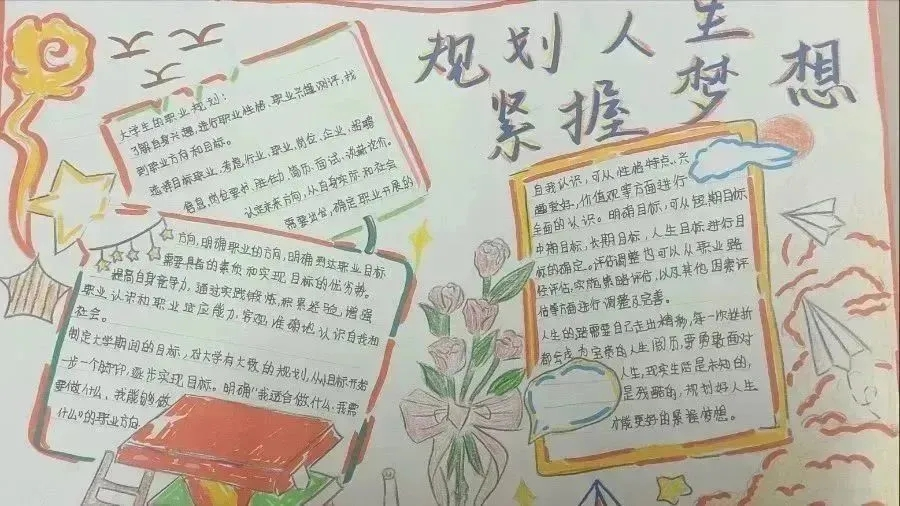 规划人生
紧握梦想
大学生的职业规划：
了解自身兴趣，进行职业性格、职业兴趣测评，找
到职业方向和目标。
选择目标职业，考虑行业，职业，岗位，企业，招聘
信息，岗位要求，胜任力，简历，面试，谈薪论价。
认定未来方向，从自身实际和社会
需要出发，确定职业开展的
方向，明确职业的方向，明确到达职业目标
需要具备的素质和实现目标的优劣势。
提高自身竞争力，通过实践锻炼，积累经验，增强
职业认识和职业适应能力，客观，准确地认识自我和
社会。
制定大学期间的目标，对大学有大致的规划，从小目标开始
一步一个脚印，逐步实现目标。明确“我适合做什么，我需
要做什么，我能够做
什么”的职业方向
自我认识，可从性格特点、兴
趣爱好，价值观等方面进行
全面的认识。明确目标，可从短期目标
中期目标，长期目标，人生目标进行目
标的确定。评估调整也可以从职业路
径评估，实施策略评估，以及其他因素评
估等方面进行调整及完善。
人生的路需要自己走出精彩，每一次挫折
都会成为宝贵的人生阅历，要勇敢面对
人生，现实生活是未知的，
是残酷的，规划好人生
才能更好的紧握梦想。